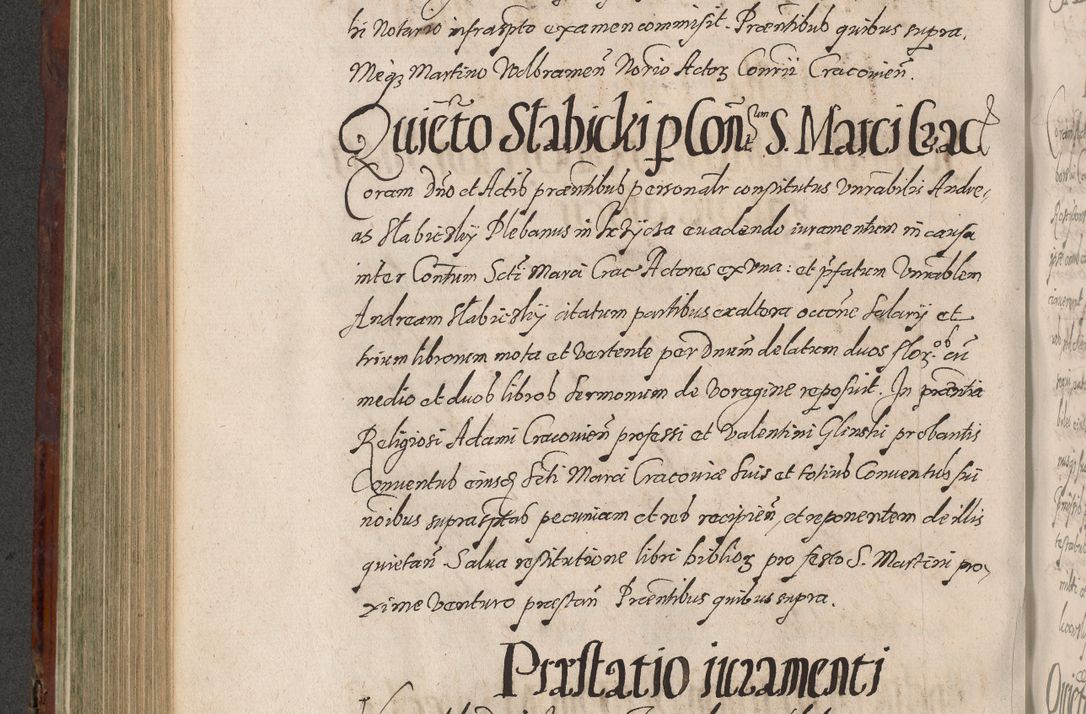 hi Notario infrascpto examen commisit. Prćentibus quibus supra.
Meqz Martino Wolbramen̄ Norio Actoz Conrii Cracovien̄.
Quietō Slabicki p Con̄tum S. Marci Crac
Coram Dn̄o et Actis prćentibus personalr constitutus Vnrabilis Andre,
as Slabicskÿ Plebanus in evadendo iuramentum in causa
inter Contum Scti Marci Crac Actores ex vna: et pfatum Vnrablem
Andream Slabicskÿ citatum partibus ex altera occōne Salarÿ et
trium librorum mota et vertente per Dnum delatum duos flor. cū
medio et duos libros Sermonum de Voragine reposuit. In prćentia
Religiosi Adami Cracovien̄ professi et Valentini Glinski probantis
Conventus eiusdz Scti Marci Cracoviæ suis et totius Conventus sui
noībus suprascptas pecuniam et res recipien̄, et reponentem de illis
quietan̄. Salva restitutione libri biblioz pro festo S. Martini pro,
xime venturo præstan̄ Prćentibus quibus supra.
Præstatio iuramenti